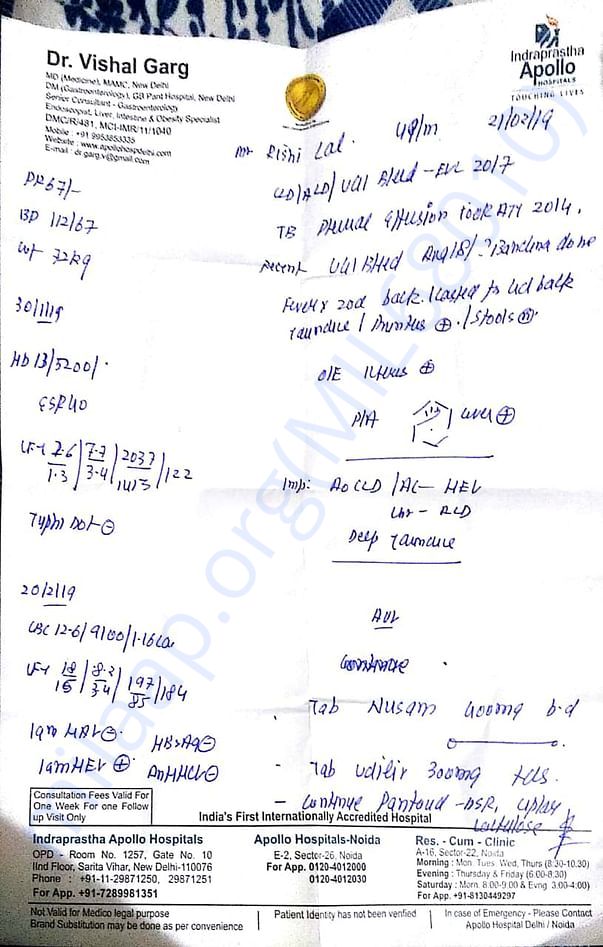 Dr. Vishal Garg
MD (Medicine), MAMC, New Delhi
DM (Gastroenterology), GB Pant Hospital, New Delhi
Senior Consultant - Gastroenterology
Endoscopist, Liver, Intestine & Obesity Specialist
DMC/R/481, MCI-IMR/11/1040
Mobile : +91 9953853335
Website : www.apollohospdelhi.com
E-mail : dr.garg.v@gmail.com
Indraprastha
Apollo
HOSPITALS
TOUCHING LIVES
Mr Rishi Lal. 49/m 21/02/19
CLD/ALD/UGI Bleed - EVL 2017
TB Pleural Effusion took ATT 2014,
Recent UGI Bleed Aug 18/ ? Banding done
Fever 20d back. lasted for
Jaundice / Pruritus ⊕ / Stools
O/E Icterus ⊕
P/A Liver ⊕
Imp: AoCLD / Ac- HEV
Chr - ALD
Deep Jaundice
Adv
Continue
Tab Nusam 400mg b.d
- Tab Udiliv 300mg tds
- Continue Pantocid-DSR,
Lactulose
PR 67/-
BP 112/67
wt 72kg
30/1/19
HB 13/5200/
ESR 40
LFT 7.6/1.3 | 7.7/3.4 | 2037/1413 | 122
Typhi Dot - ⊖
20/2/19
CBC 12.6/9100/1.16
LFT 18/15 | 8.2/3.4 | 197/85 | 184
IgM HAV ⊖ HBsAg ⊖
IgM HEV ⊕ AntiHCV ⊖
milaap.org(MIL68010)
Consultation Fees Valid For
One Week For one Follow
up Visit Only
India's First Internationally Accredited Hospital
Indraprastha Apollo Hospitals
OPD - Room No. 1257, Gate No. 10
IInd Floor, Sarita Vihar, New Delhi-110076
Phone : +91-11-29871250, 29871251
For App. +91-7289981351
Apollo Hospitals-Noida
E-2, Sector-26, Noida
For App. 0120-4012000
0120-4012030
Res. - Cum - Clinic
A-16, Sector-22, Noida
Morning : Mon. Tues. Wed, Thurs (8.30-10.30)
Evening : Thursday & Friday (6.00-8.30)
Saturday : Morn. 8.00-9.00 & Evng. 3.00-4.00)
For App. +91-8130449297
Not Valid for Medico legal purpose
Brand Substitution may be done as per convenience
Patient Identity has not been verified
In case of Emergency - Please Contact
Apollo Hospital Delhi / Noida